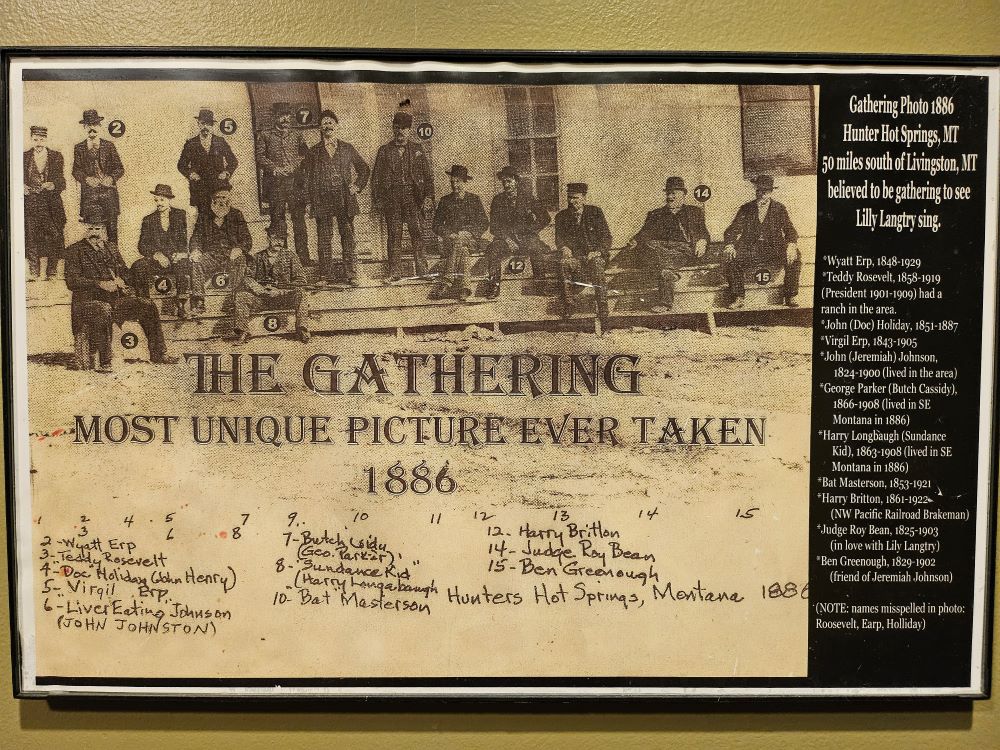 2
5
7
10
14
4
6
12
15
8
3
THE GATHERING
MOST UNIQUE PICTURE EVER TAKEN
1886
1 2 4 5 7 9. 10 11 12 13 14 15
3 6 8
2-Wyatt Erp
3-Teddy Rosevelt
4-Doc Holiday (John Henry)
5-Virgil Erp
6-Liver Eating Johnson
(JOHN JOHNSTON)
7-Butch
(Geo. Parker)
8-"Sundance Kid"
(Harry Longabaugh
10-Bat Masterson
12-Harry Britton
14-Judge Roy Bean
15-Ben Greenough
Hunters Hot Springs, Montana 1886
Gathering Photo 1886
Hunter Hot Springs, MT
50 miles south of Livingston, MT
believed to be gathering to see
Lilly Langtry sing.
*Wyatt Erp, 1848-1929
*Teddy Rosevelt, 1858-1919
(President 1901-1909) had a
ranch in the area.
*John (Doc) Holiday, 1851-1887
*Virgil Erp, 1843-1905
*John (Jeremiah) Johnson,
1824-1900 (lived in the area)
*George Parker (Butch Cassidy),
1866-1908 (lived in SE
Montana in 1886)
*Harry Longbaugh (Sundance
Kid), 1863-1908 (lived in SE
Montana in 1886)
*Bat Masterson, 1853-1921
*Harry Britton, 1861-1922
(NW Pacific Railroad Brakeman)
*Judge Roy Bean, 1825-1903
(in love with Lily Langtry)
*Ben Greenough, 1829-1902
(friend of Jeremiah Johnson)
(NOTE: names misspelled in photo:
Roosevelt, Earp, Holliday)